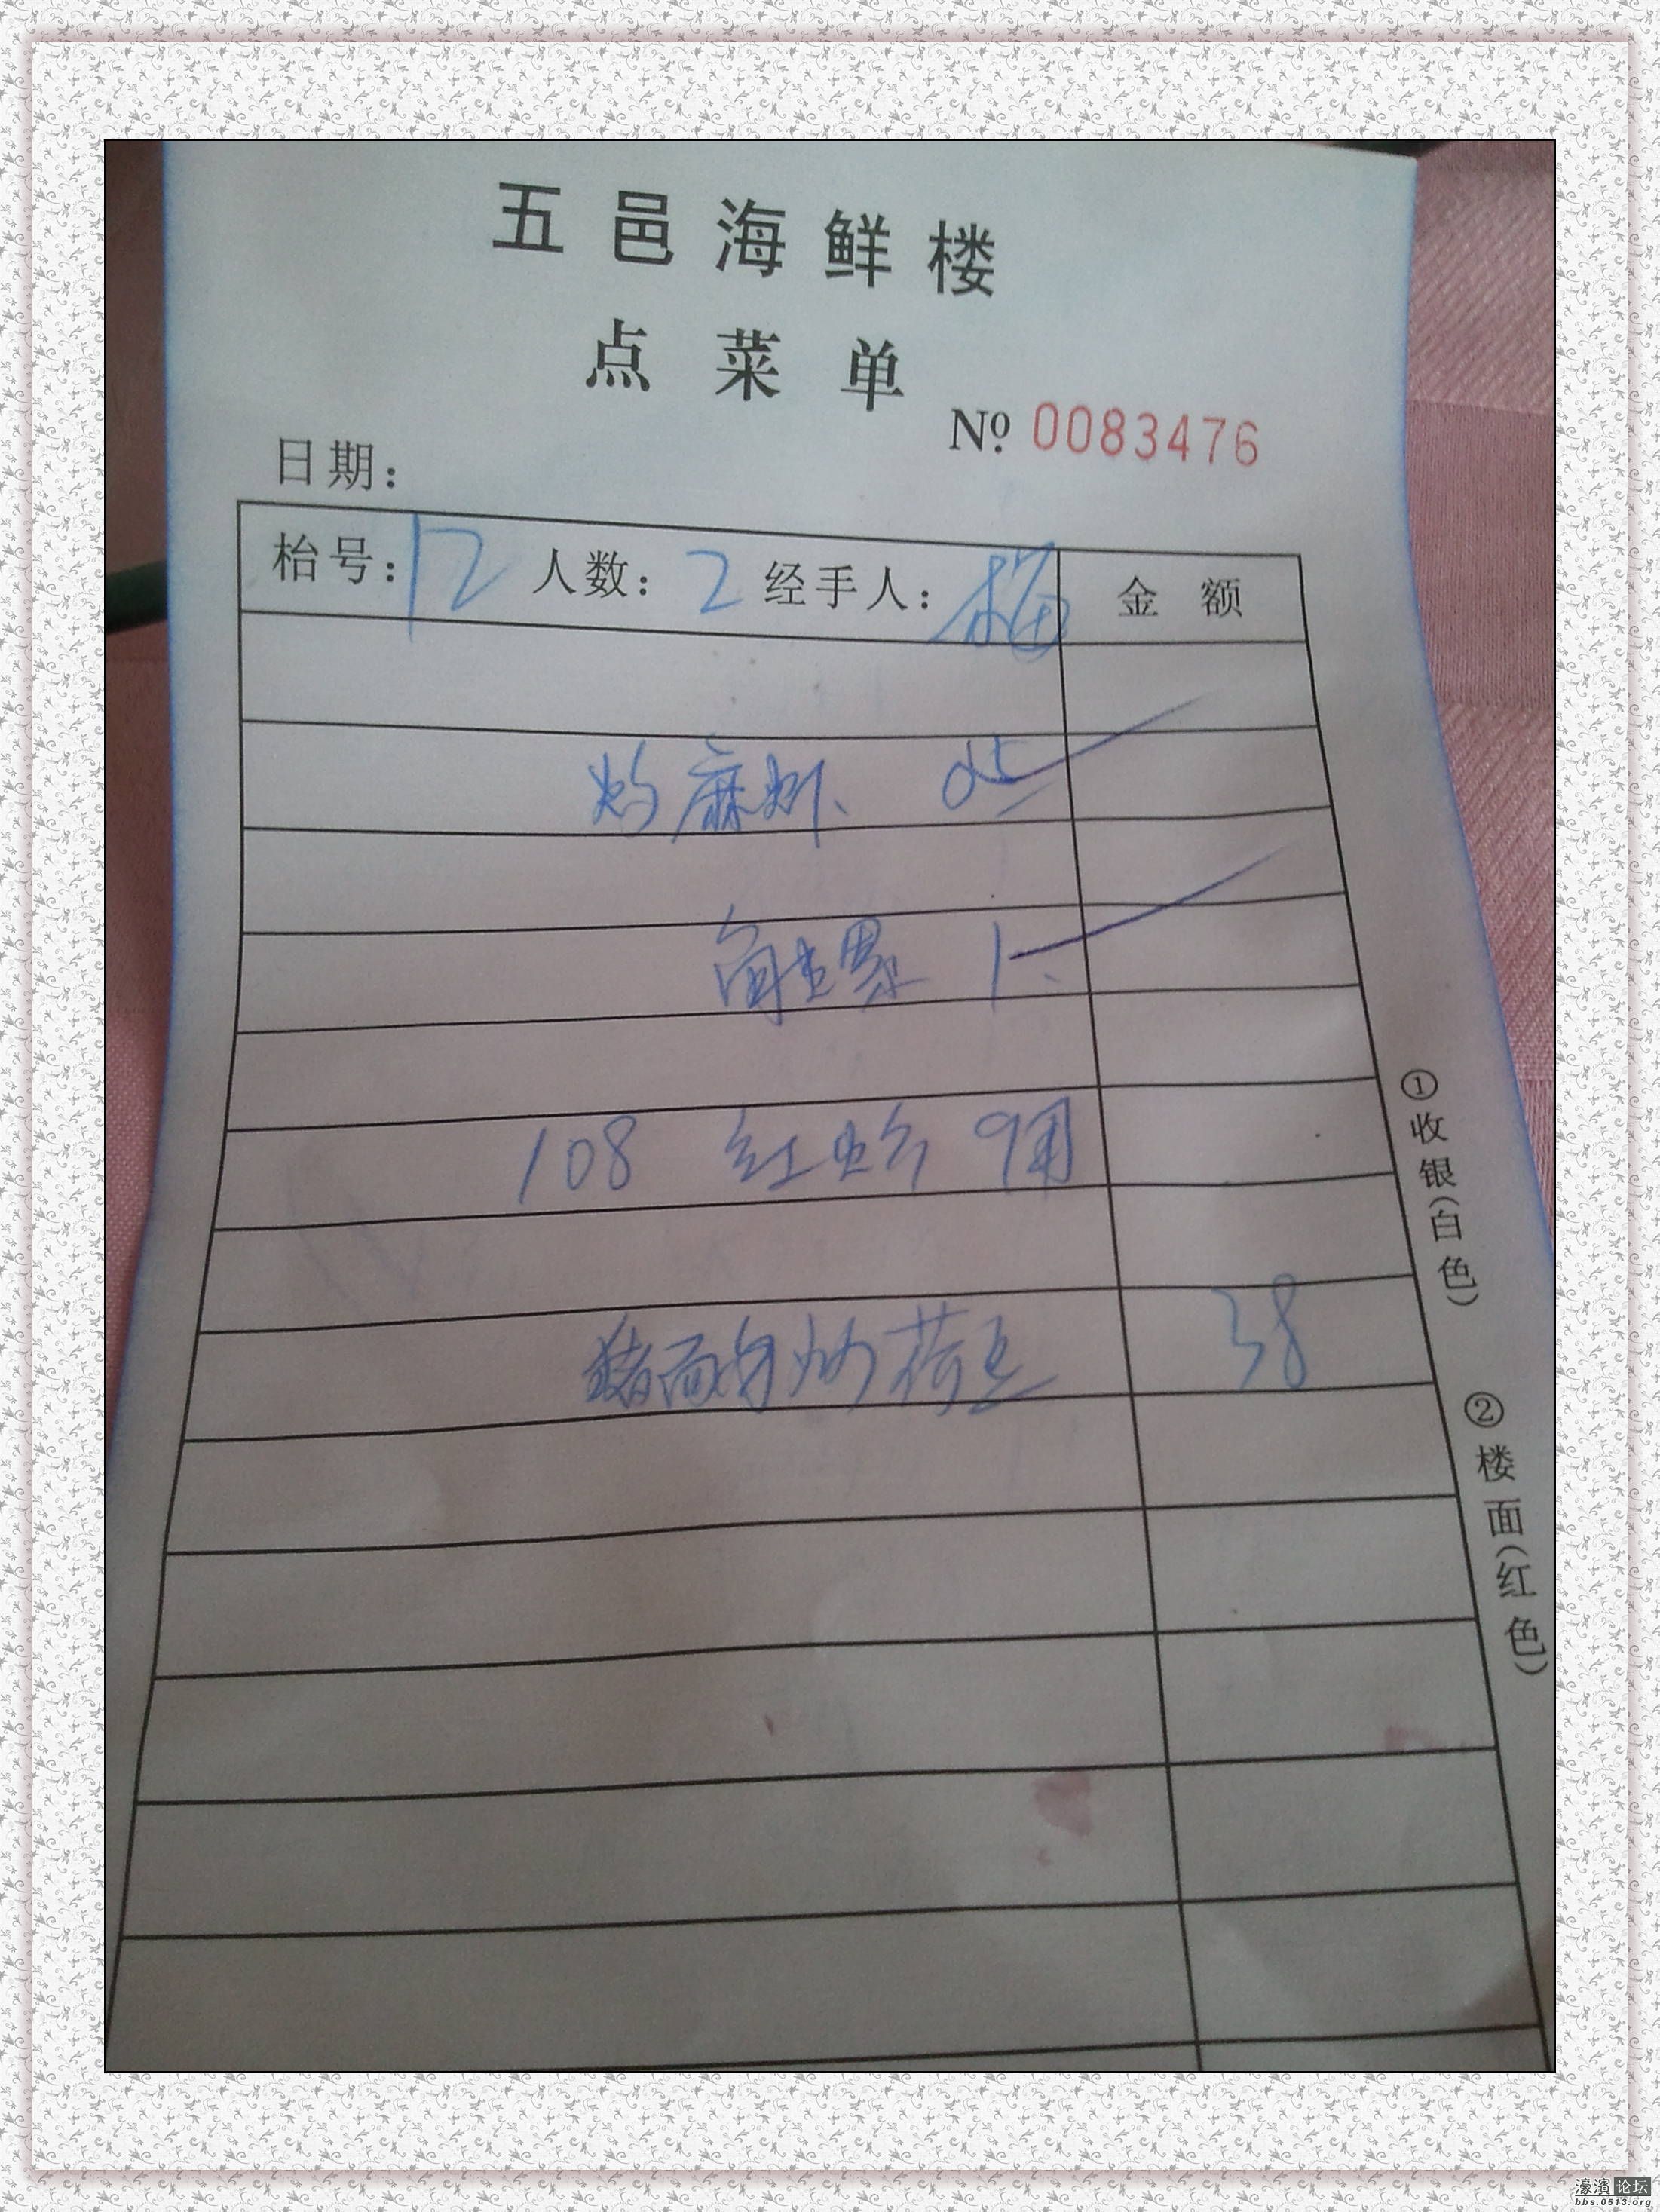 五邑海鲜楼
点菜单
№ 0083476
日期：
枱号：12 人数：2 经手人：梅 金额
灼麻虾
1
108 红
猪 炒荷豆 38
①收银（白色）
②楼面（红色）
濠滨论坛
bbs.0513.org